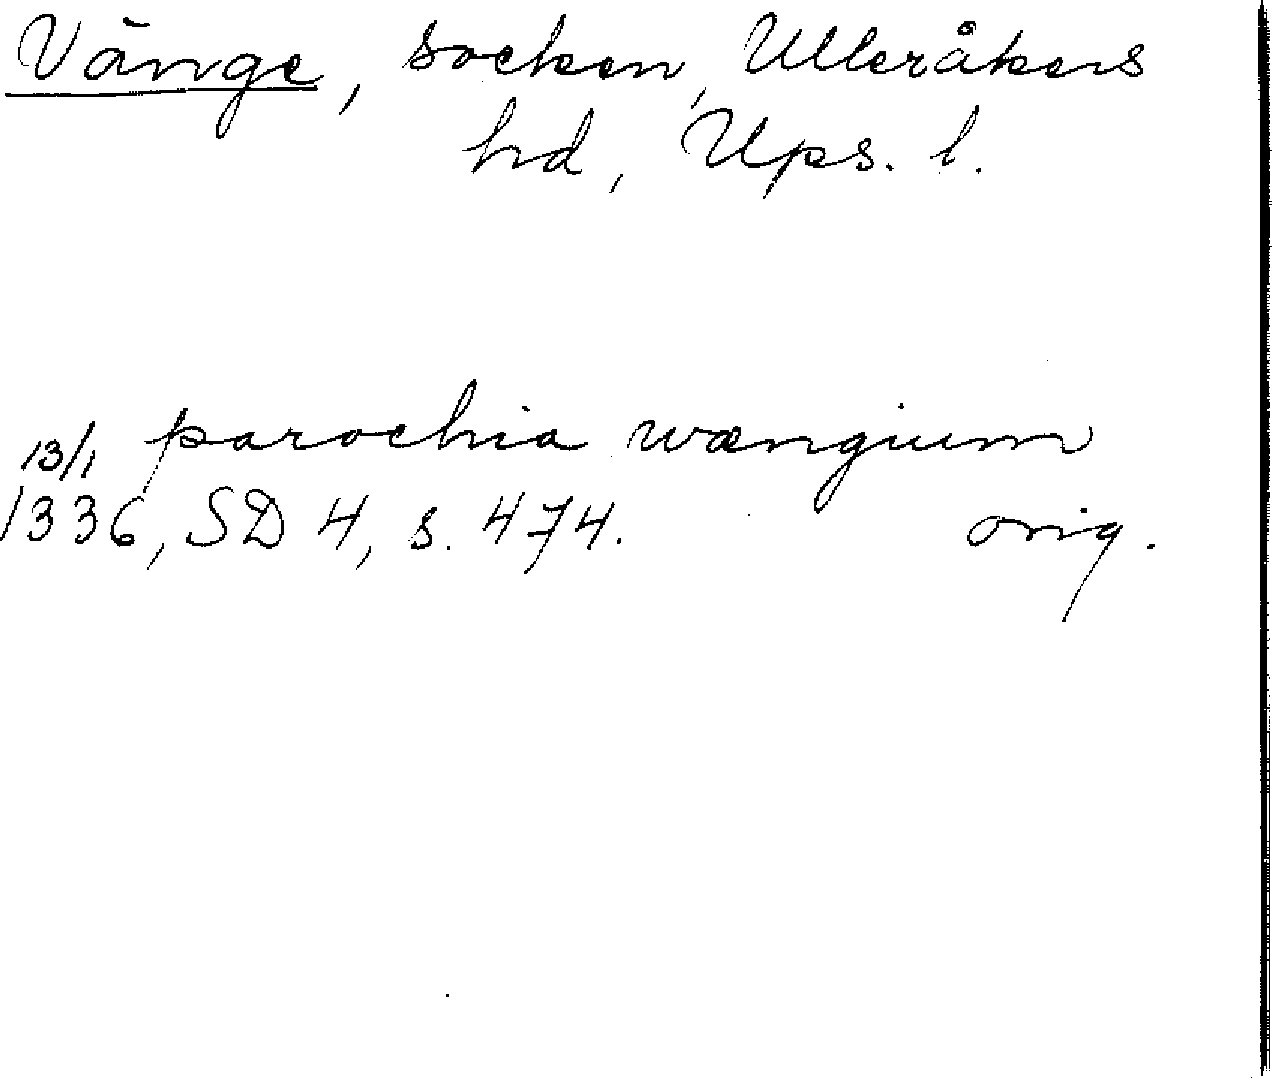 Vänge, socken, Ulleråkers
hd, Ups. l.
13/1 parochia wængium
1336, SD 4, s. 474. orig.